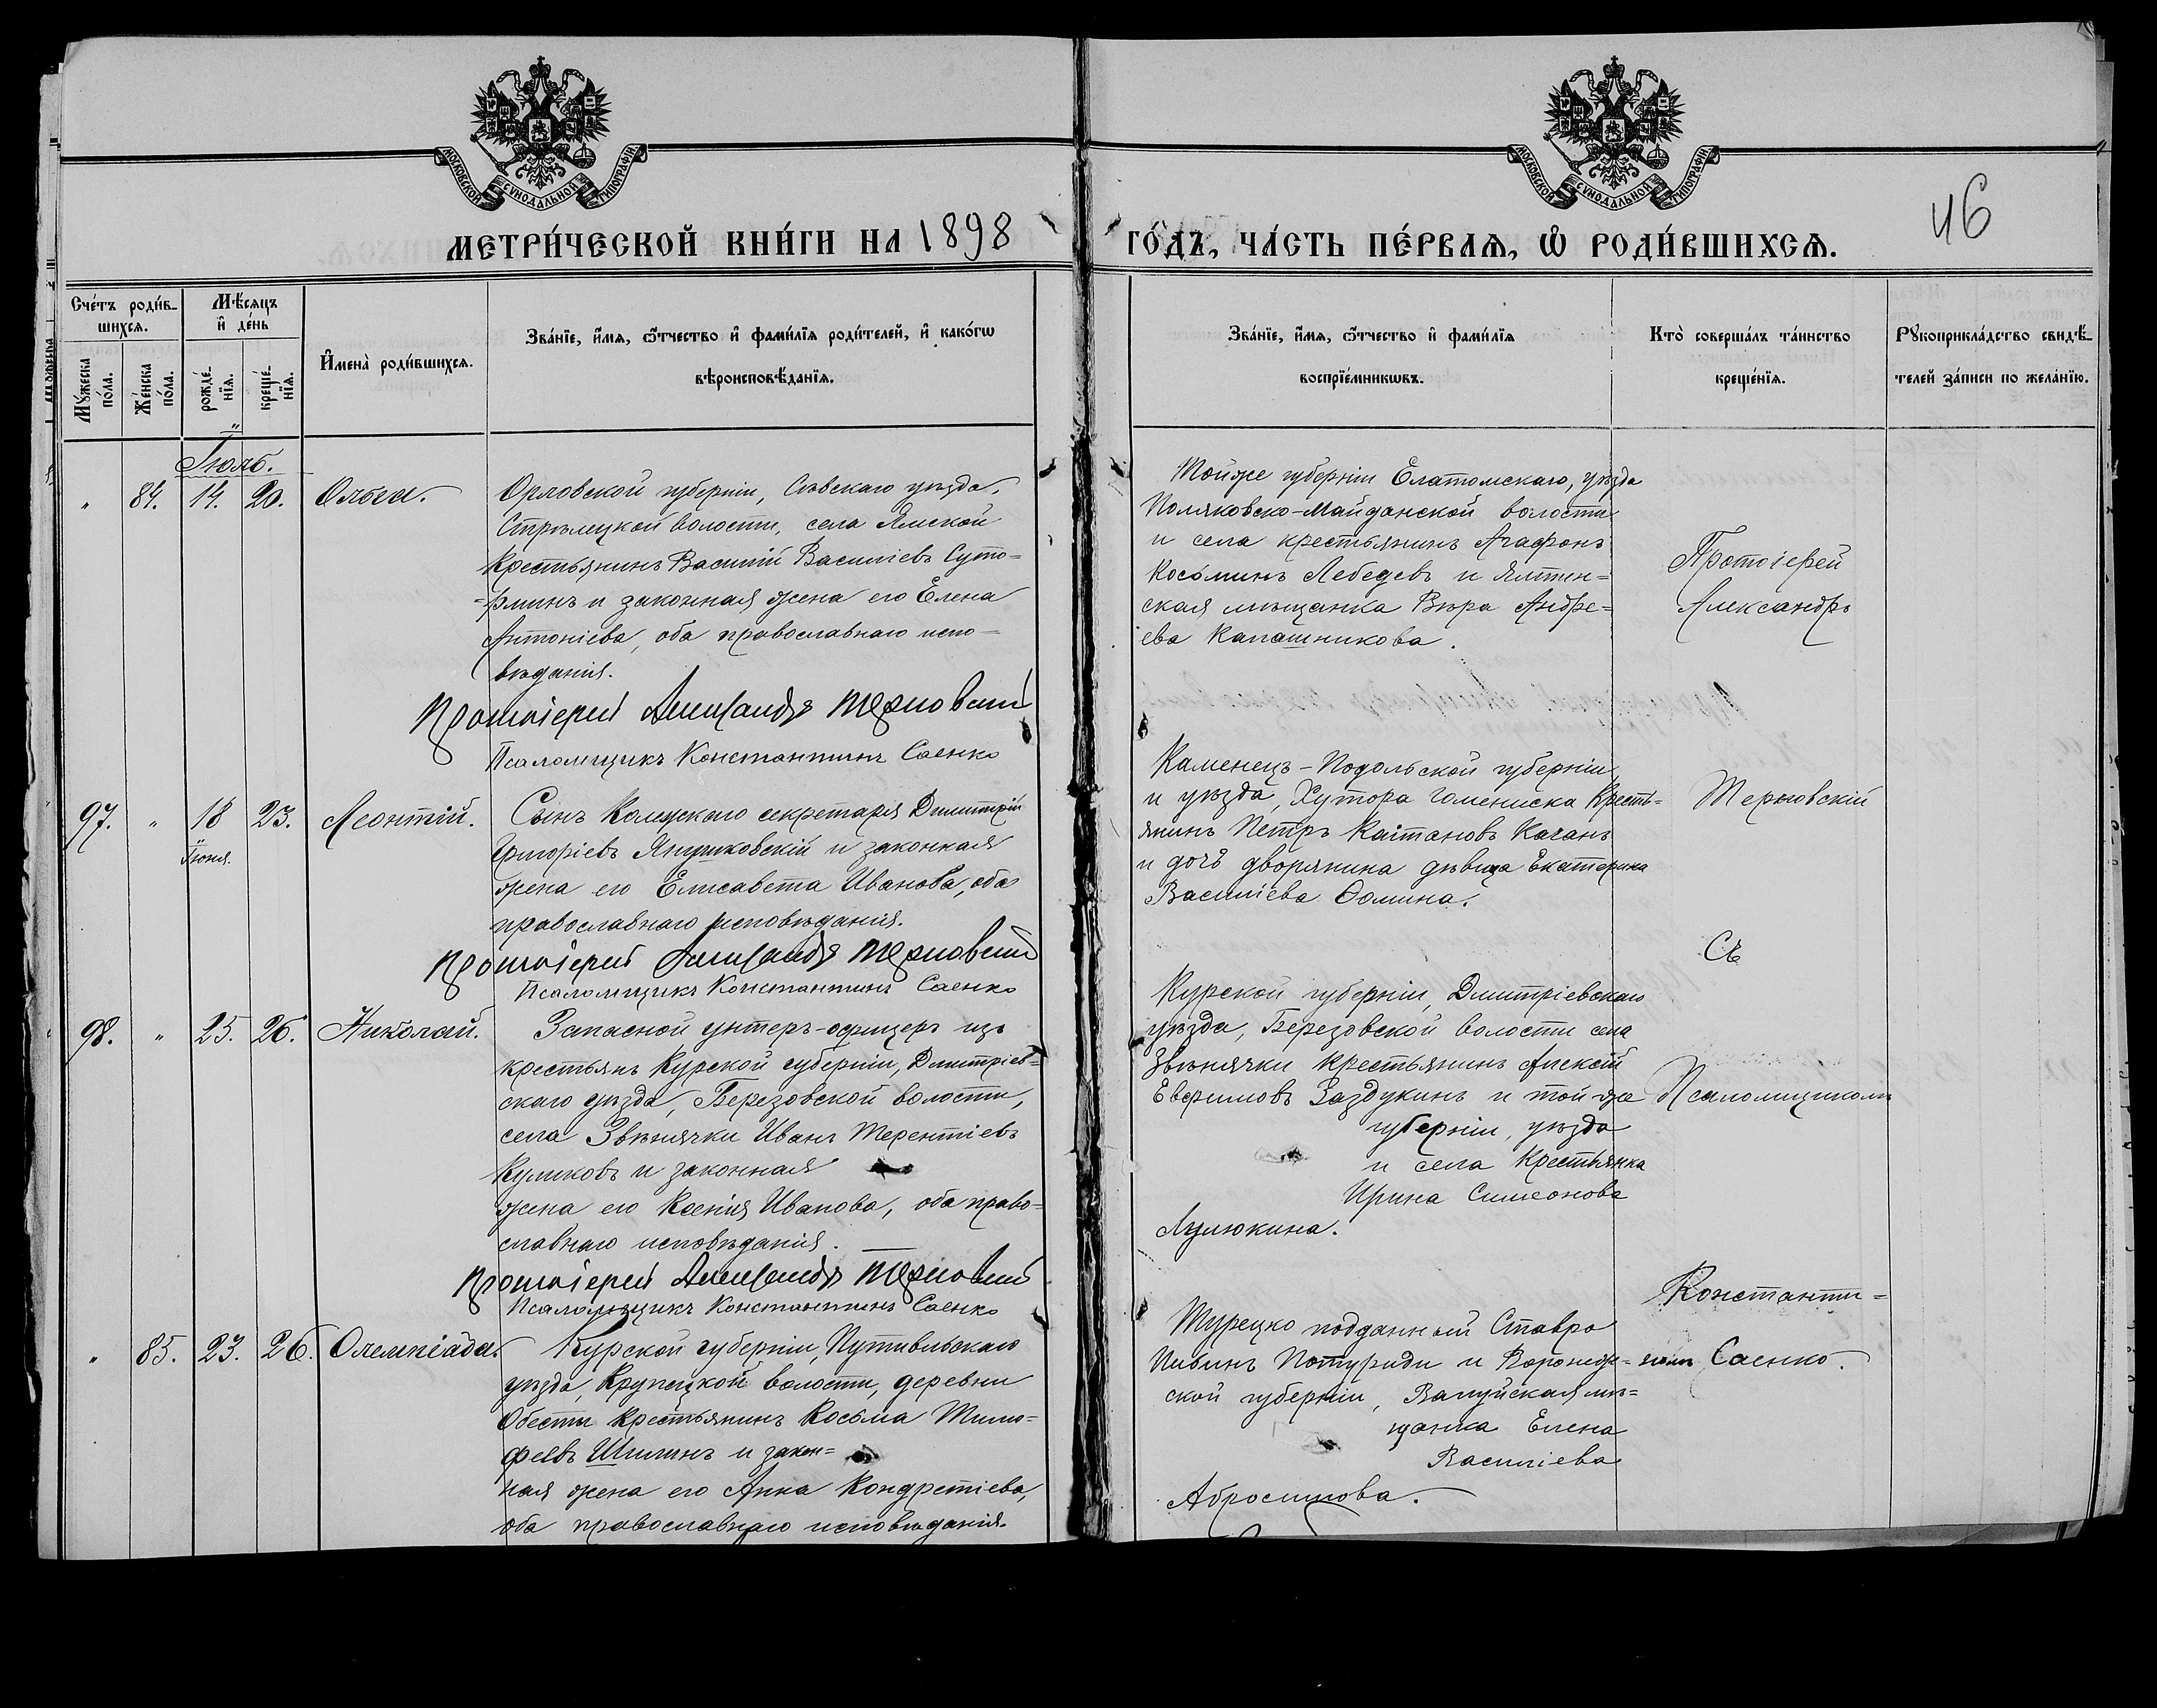 МОСКОВСКОЙ СѴНОДАЛЬНОЙ ТИПОГРАФІИ
МОСКОВСКОЙ СѴНОДАЛЬНОЙ ТИПОГРАФІИ
46
МЕТРИ́ЧЕСКОЙ КНИ́ГИ НА 1898 ГО́ДЪ, ЧА́СТЬ ПЕ́РВАѦ, Ѡ҆ РОДИ́ВШИХСѦ.
Сче́тъ роди́в-
шихсѧ.
Мꙋ́жеска по́ла.
Же́нска по́ла.
Мѣ́сѧцъ
и҆ де́нь
рожде́-
нїѧ.
креще́-
нїѧ.
И҆мена̀ роди́вшихсѧ.
Зва́нїе, и҆́мѧ, ѻ҆́тчество и҆ фами́лїѧ роди́телей, и҆ како́гѡ
вѣроисповѣ́данїѧ.
Зва́нїе, и҆́мѧ, ѻ҆́тчество и҆ фами́лїѧ
воспрїе́мникѡвъ.
Кто̀ соверша́лъ та́инство
креще́нїѧ.
Рꙋкоприкла́дство свидѣ́-
телей за́писи по жела́нїю.
Іюль.
" 84. 14. 20. Ольга.
Орловской губерніи, Сѣвскаго уѣзда,
Стрѣлецкой волости, села Ямской
крестьянинъ Василій Василіевъ Суто-
=рминъ и законная жена его Елена
Антоніева, оба православнаго испо-
вѣданія.
Протоіерей Александръ Терновскій
Псаломщикъ Константинъ Саенко
Тойже губерніи Елатомскаго, уѣзда
Поляковско-Майданской волости
и села крестьянинъ Агафонъ
Косьминъ Лебедевъ и Ялтин=
ская мѣщанка Вѣра Андре=
ева Калашникова.
Протоіерей
Александръ
97. " 18 23. Леонтій.
Іюня.
Сынъ Коллежскаго секретаря Димитрій
Григоріевъ и законная
жена его Елисавета Иванова, оба
православнаго исповѣданія.
Протоіерей Александръ Терновскій
Псаломщикъ Константинъ Саенко
Каменецъ-Подольской губерніи
и уѣзда, Хутора Кресть=
янинъ Петръ Качанъ
и дочь дворянина дѣвица Екатерина
Василіева Ѳомина.
Терновскій
Съ
98. " 25. 26. Николай.
Запасной унтеръ-офицеръ изъ
крестьянъ Курской губерніи, Дмитріев=
скаго уѣзда, Березовской волости,
села Звѣнячки Иванъ Терентіевъ
Куликовъ и законная
жена его Ксенія Иванова, оба право=
славнаго исповѣданія.
Протоіерей Александръ Терновскій
Псаломщикъ Константинъ Саенко
Курской губерніи, Дмитріевскаго
уѣзда, Березовской волости села
Звѣнячки крестьянинъ Алексій
Евфимовъ Заздукинъ и той-же
губерніи, уѣзда
и села Крестьянка
Ирина Симеонова
Псаломщикомъ
" 85. 23. 26. Олимпіада.
Курской губерніи, Путивльскаго
уѣзда, Крупецкой волости, деревни
Обесты крестьянинъ Косьма Тимо=
феевъ Шилинъ и закон=
ная жена его Анна Кондретіева,
оба православнаго исповѣданія.
Турецко подданный Ставро
Потуриди и Воронеж=
ской губерніи, Валуйская мѣ=
щанка Елена
Василіева
Абросимова.
Константи=
номъ Саенко.